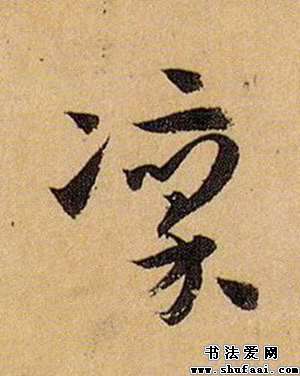 凛
书法爱网
www.shufaai.com